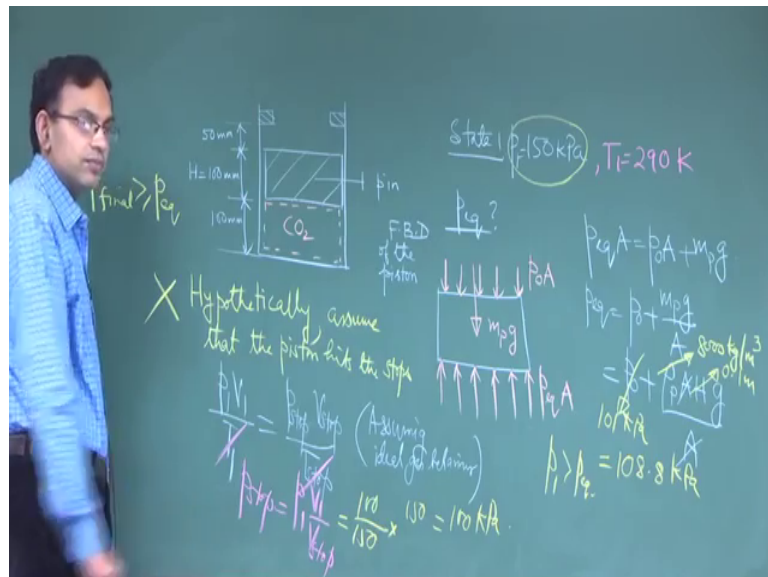 50mm
H=100mm
100mm
CO₂
pin
final ≥ Peq
State 1 P₁=150kPa, T₁=290 K
Peq ?
F.B.D
of the
piston
P₀A
mpg
PeqA
PeqA = P₀A + mpg
Peq = P₀ + mpg/A
= P₀ + ρAHg/A
8000kg/m³
101 kPa
P₁ > Peq. = 108.8 kPa
X Hypothetically, assume
that the piston hits the stops
P₁V₁/T₁ = Pstop Vstop/Tstop (Assuming
ideal gas behavior)
Pstop = P₁ V₁/Vstop = 100/150 × 150 = 100 kPa.